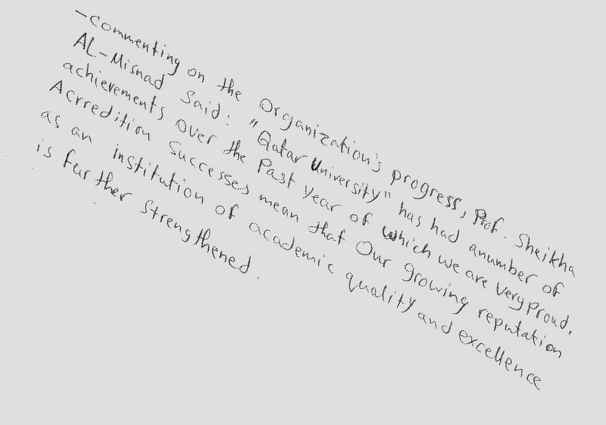 -commenting on the Organization's progress, Prof. Sheikha
AL-Misnad Said: "Qatar University" has had anumber of
achievements over the Past year of which we are very proud.
Acrredition Successes mean that Our growing reputation
as an institution of academic quality and excellence
is further strengthened.